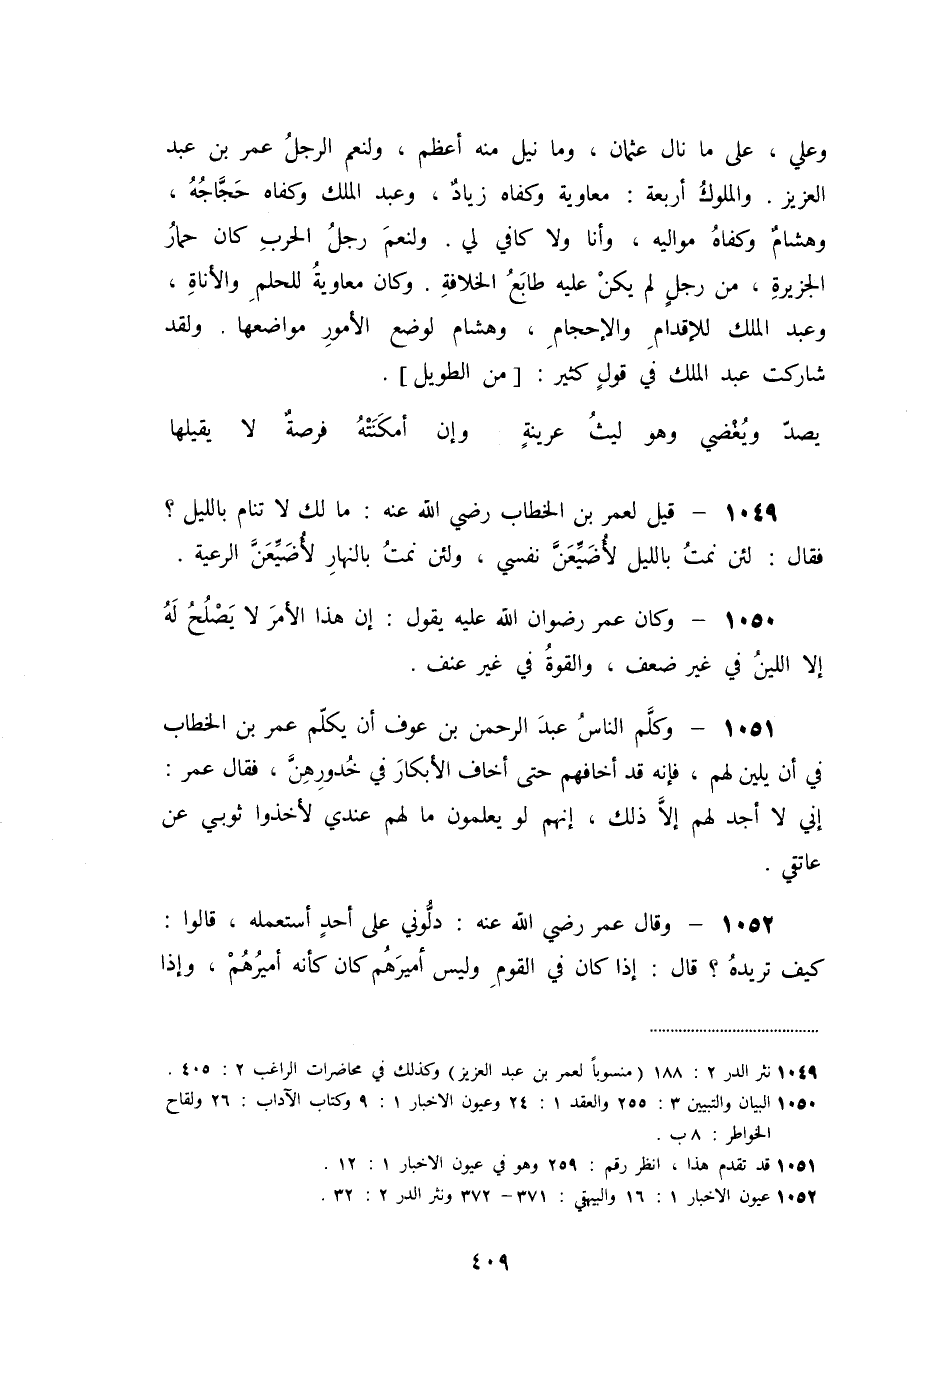 وعلي ، على ما نال عثمان ، وما نيل منه أعظم ، ولنعم الرجلُ عمر بن عبد
العزيز . والملوكُ أربعة : معاوية وكفاه زيادٌ ، وعبد الملك وكفاه حَجَّاجُهُ ،
وهشامٌ وكفاهُ مواليه ، وأنا ولا كافي لي . ولنعمَ رجلُ الحربِ كان حمارُ
الجزيرةِ ، من رجلٍ لم يكنْ عليه طابَعُ الخلافةِ . وكان معاويةُ للحلمِ والأناةِ ،
وعبد الملك للإقدامِ والإحجامِ ، وهشام لوضع الأمورِ مواضعها . ولقد
شاركت عبد الملك في قولٍ كثير : [ من الطويل ] .
يصدّ ويُغْضي وهو ليثُ عرينةٍ وإن أمكَنَتْهُ فرصةٌ لا يقيلها
١٠٤٩ – قيل لعمر بن الخطاب رضي الله عنه : ما لك لا تنام بالليل ؟
فقال : لئن نمتُ بالليل لأُضَيِّعَنَّ نفسي ، ولئن نمتُ بالنهارِ لأُضَيِّعَنَّ الرعية .
١٠٥٠ – وكان عمر رضوان الله عليه يقول : إن هذا الأمرَ لا يَصْلُحُ لَهُ
إلا اللينُ في غير ضعف ، والقوةُ في غير عنف .
١٠٥١ – وكلَّم الناسُ عبدَ الرحمن بن عوف أن يكلّم عمر بن الخطاب
في أن يلين لهم ، فإنه قد أخافهم حتى أخاف الأبكارَ في خُدورِهِنَّ ، فقال عمر :
إني لا أجد لهم إلاَّ ذلك ، إنهم لو يعلمون ما لهم عندي لأخذوا ثوبي عن
عاتقي .
١٠٥٢ – وقال عمر رضي الله عنه : دلُّوني على أحدٍ أستعمله ، قالوا :
كيف تريدهُ ؟ قال : إذا كان في القومِ وليس أميرَهُم كان كأنه أميرُهُمْ ، وإذا
١٠٤٩ نثر الدر ٢ : ١٨٨ ( منسوباً لعمر بن عبد العزيز ) وكذلك في محاضرات الراغب ٢ : ٤٠٥ .
١٠٥٠ البيان والتبيين ٣ : ٢٥٥ والعقد ١ : ٢٤ وعيون الاخبار ١ : ٩ وكتاب الآداب : ٢٦ ولقاح
الخواطر : ٨ ب .
١٠٥١ قد تقدم هذا ، انظر رقم : ٢٥٩ وهو في عيون الاخبار ١ : ١٢ .
١٠٥٢ عيون الاخبار ١ : ١٦ والبيهقي : ٣٧١ – ٣٧٢ ونثر الدر ٢ : ٣٢ .
٤٠٩